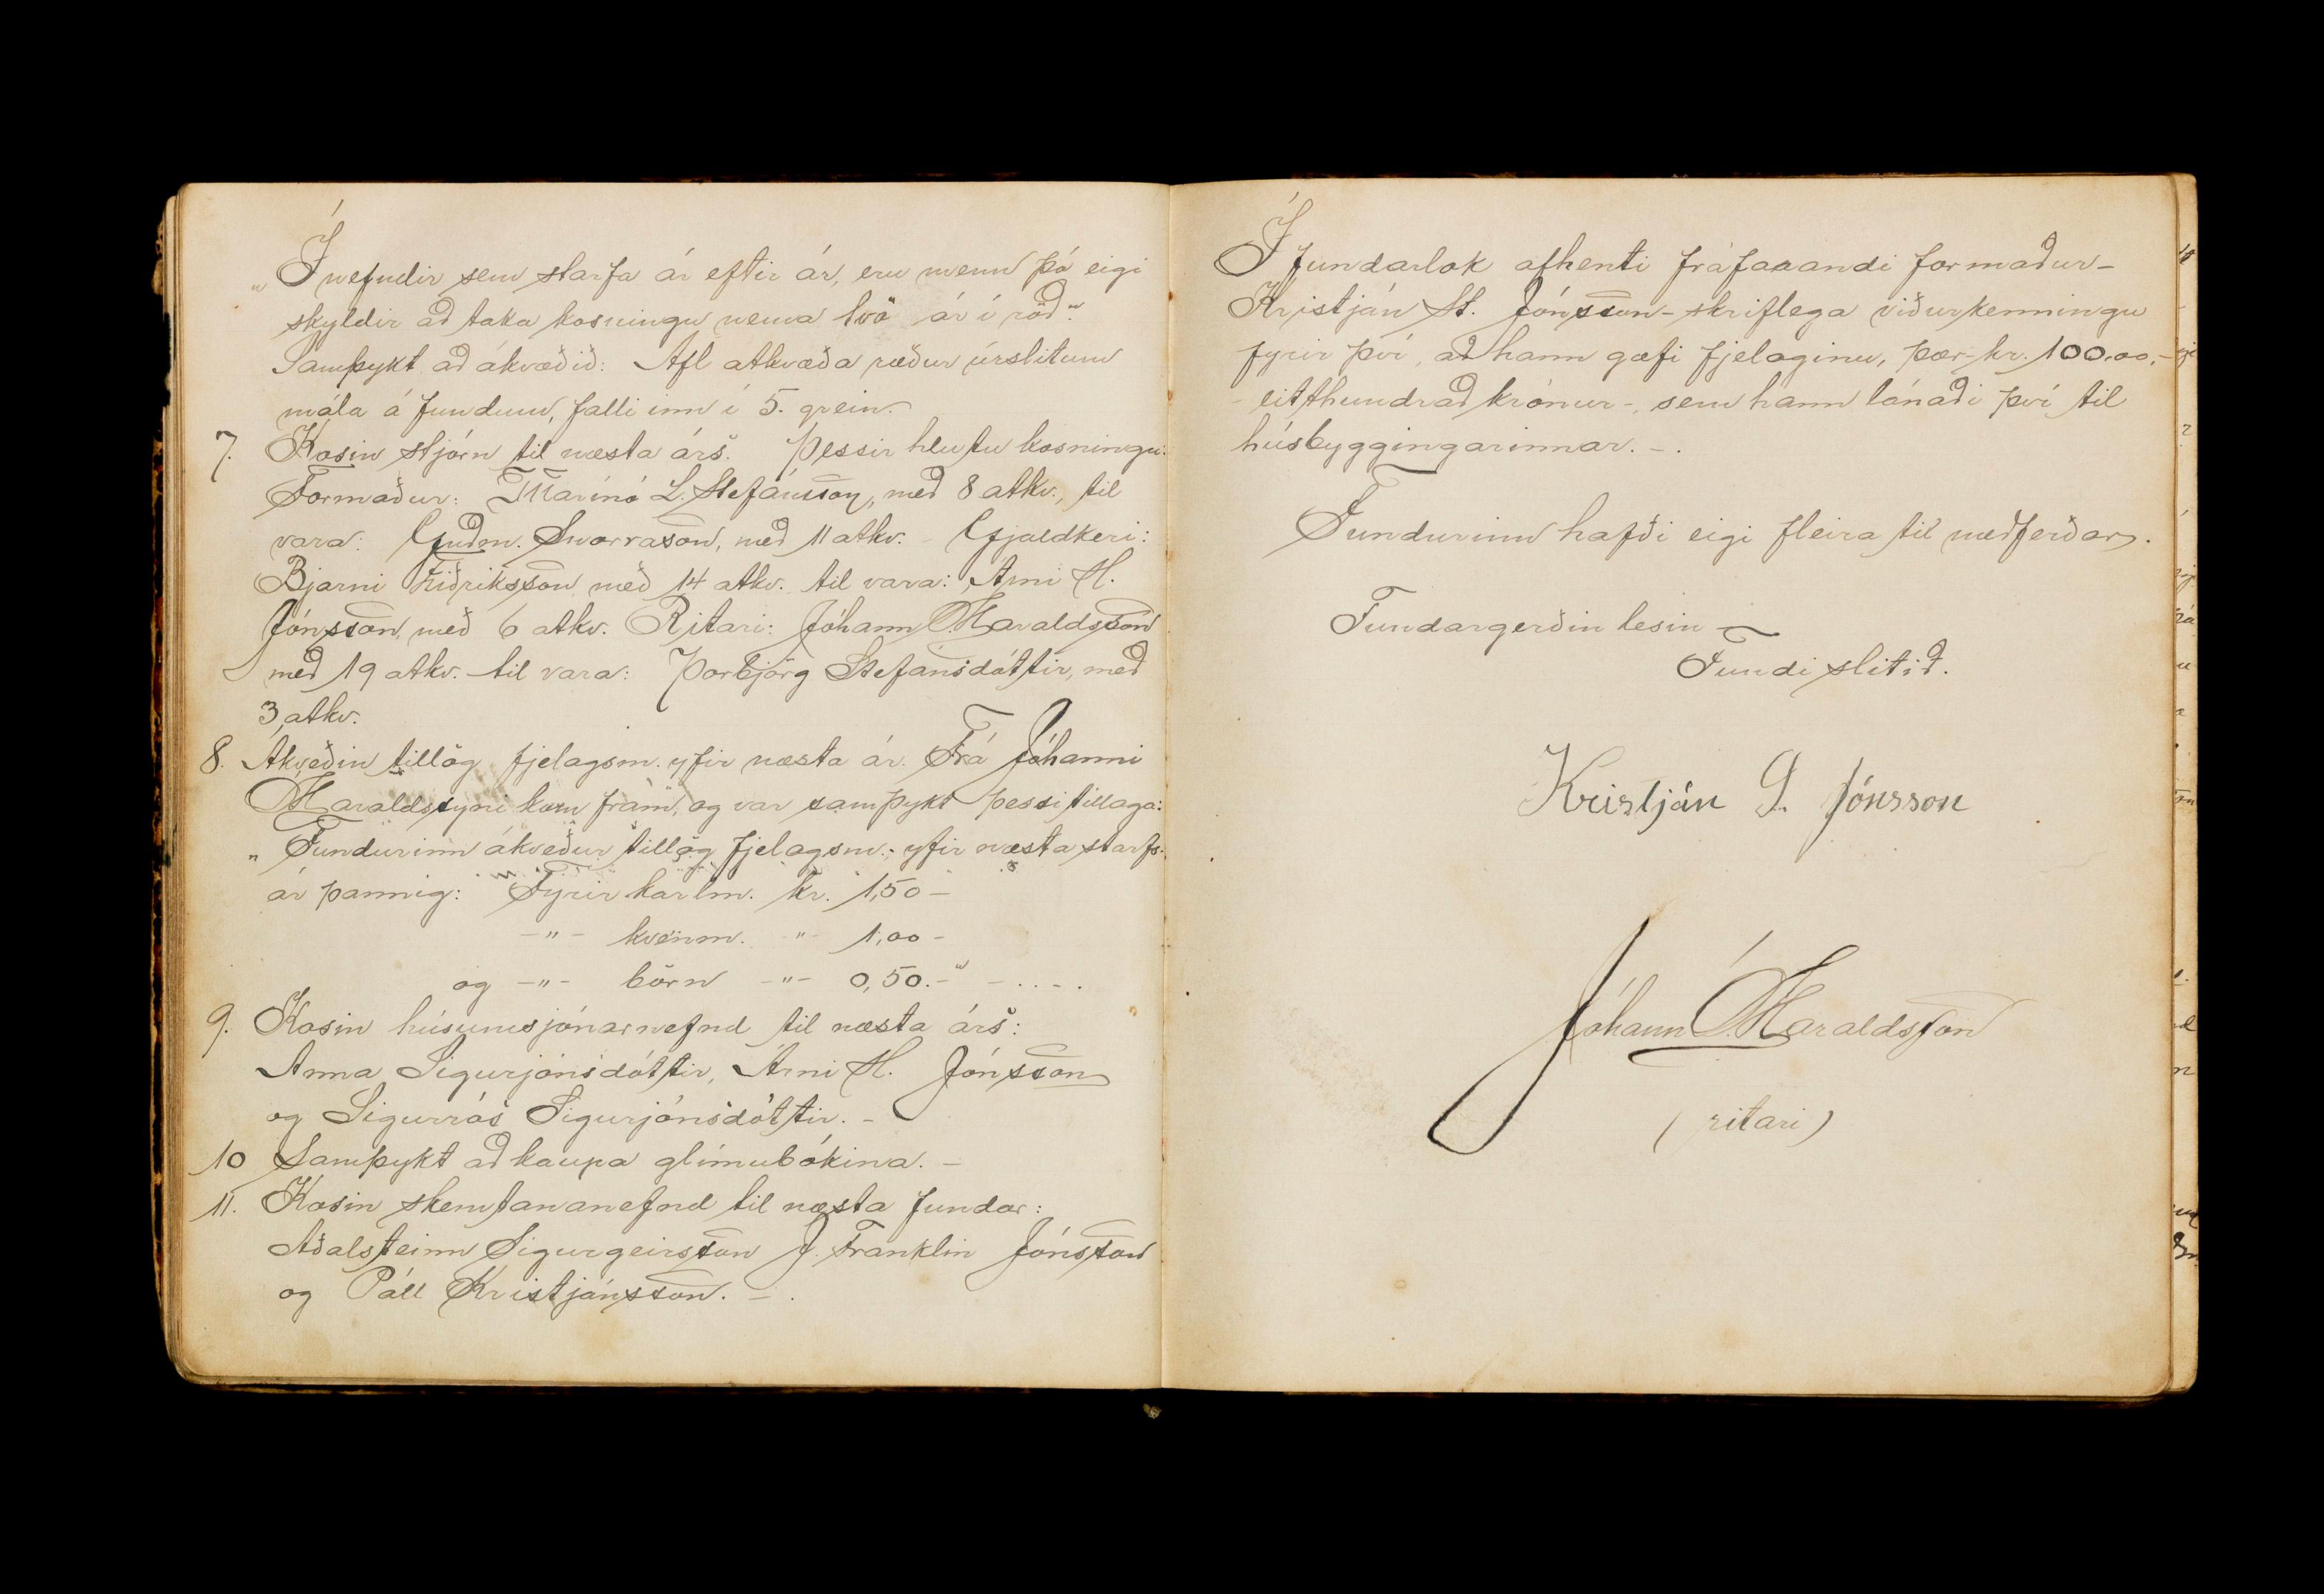 „Í nefndir sem starfa ár eftir ár, eru menn þó eigi
skyldir að taka kosningu nema tvö ár í röð."
Samþykt að ákvæðið: Afl atkvæða ræður úrslitum
mála á fundum, falli inn í 5. grein.
7. Kosin stjórn til næsta árs. Þessir hlutu kosningu:
Formaður: Marinó L. Stefánsson, með 8 atkv., til
vara: Guðm. Snorrason, með 11 atkv. - Gjaldkeri:
Bjarni Friðriksson með 14 atkv. til vara: Árni H.
Jónsson með 6 atkv. Ritari: Jóhann Haraldsson
með 19 atkv. til vara: Þorbjörg Stefánsdóttir, með
3 atkv.
8. Ákveðin tillög fjelagsm. yfir næsta ár. Frá Jóhanni
Haraldssyni kom fram, og var samþykt þessi tillaga:
„Fundurinn ákveður tillög fjelagsm. yfir næsta starfs-
ár þannig: Fyrir karlm. kr. 1,50 -
-"- kvenm. -"- 1,00 -
og -"- börn -"- 0,50.-" - . . - .
9. Kosin húsumsjónarnefnd til næsta árs:
Anna Sigurjónsdóttir, Árni H. Jónsson
og Sigurrós Sigurjónsdóttir. -
10 Samþykt að kaupa glímubókina. -
11. Kosin skemtananefnd til næsta fundar:
Aðalsteinn Sigurgeirsson J. Franklin Jónsson
og Páll Kristjánsson. - .
Í fundarlok afhenti fráfaraandi formaður -
Kristján St. Jónsson - skriflega viðurkenningu
fyrir því, að hann gæfi fjelaginu, þær kr. 100,00, -
- eitthundrað krónur -, sem hann lánaði því til
húsbyggingarinnar. - .
Fundurinn hafði eigi fleira til meðferðar.
Fundargerðin lesin -
Fundi slitið.
Kristján S. Jónsson
Jóhann Haraldsson
(ritari)